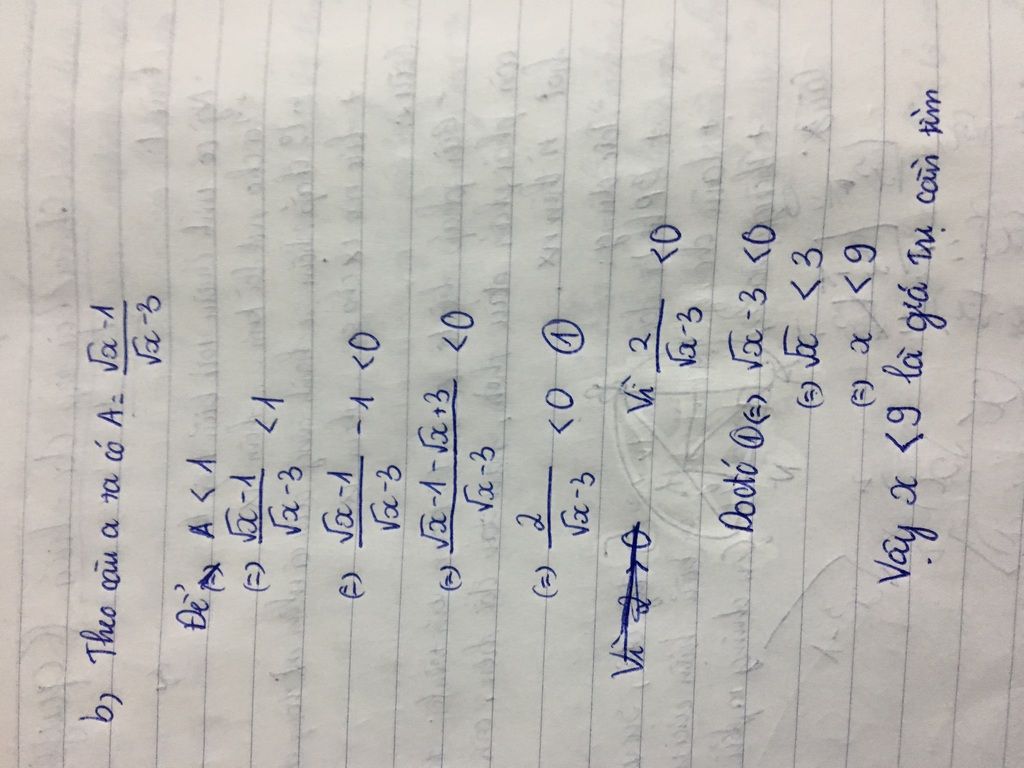 b, Theo câu a ta có A = √x-1 / √x-3
Để A < 1
(=) √x-1 / √x-3 < 1
(=) √x-1 / √x-3 - 1 < 0
(=) √x-1-√x+3 / √x-3 < 0
(=) 2 / √x-3 < 0 ①
Vì 2 > 0 Vì 2 / √x-3 < 0
Do đó ①(=) √x-3 < 0
(=) √x < 3
(=) x < 9
Vậy x < 9 là giá trị cần tìm